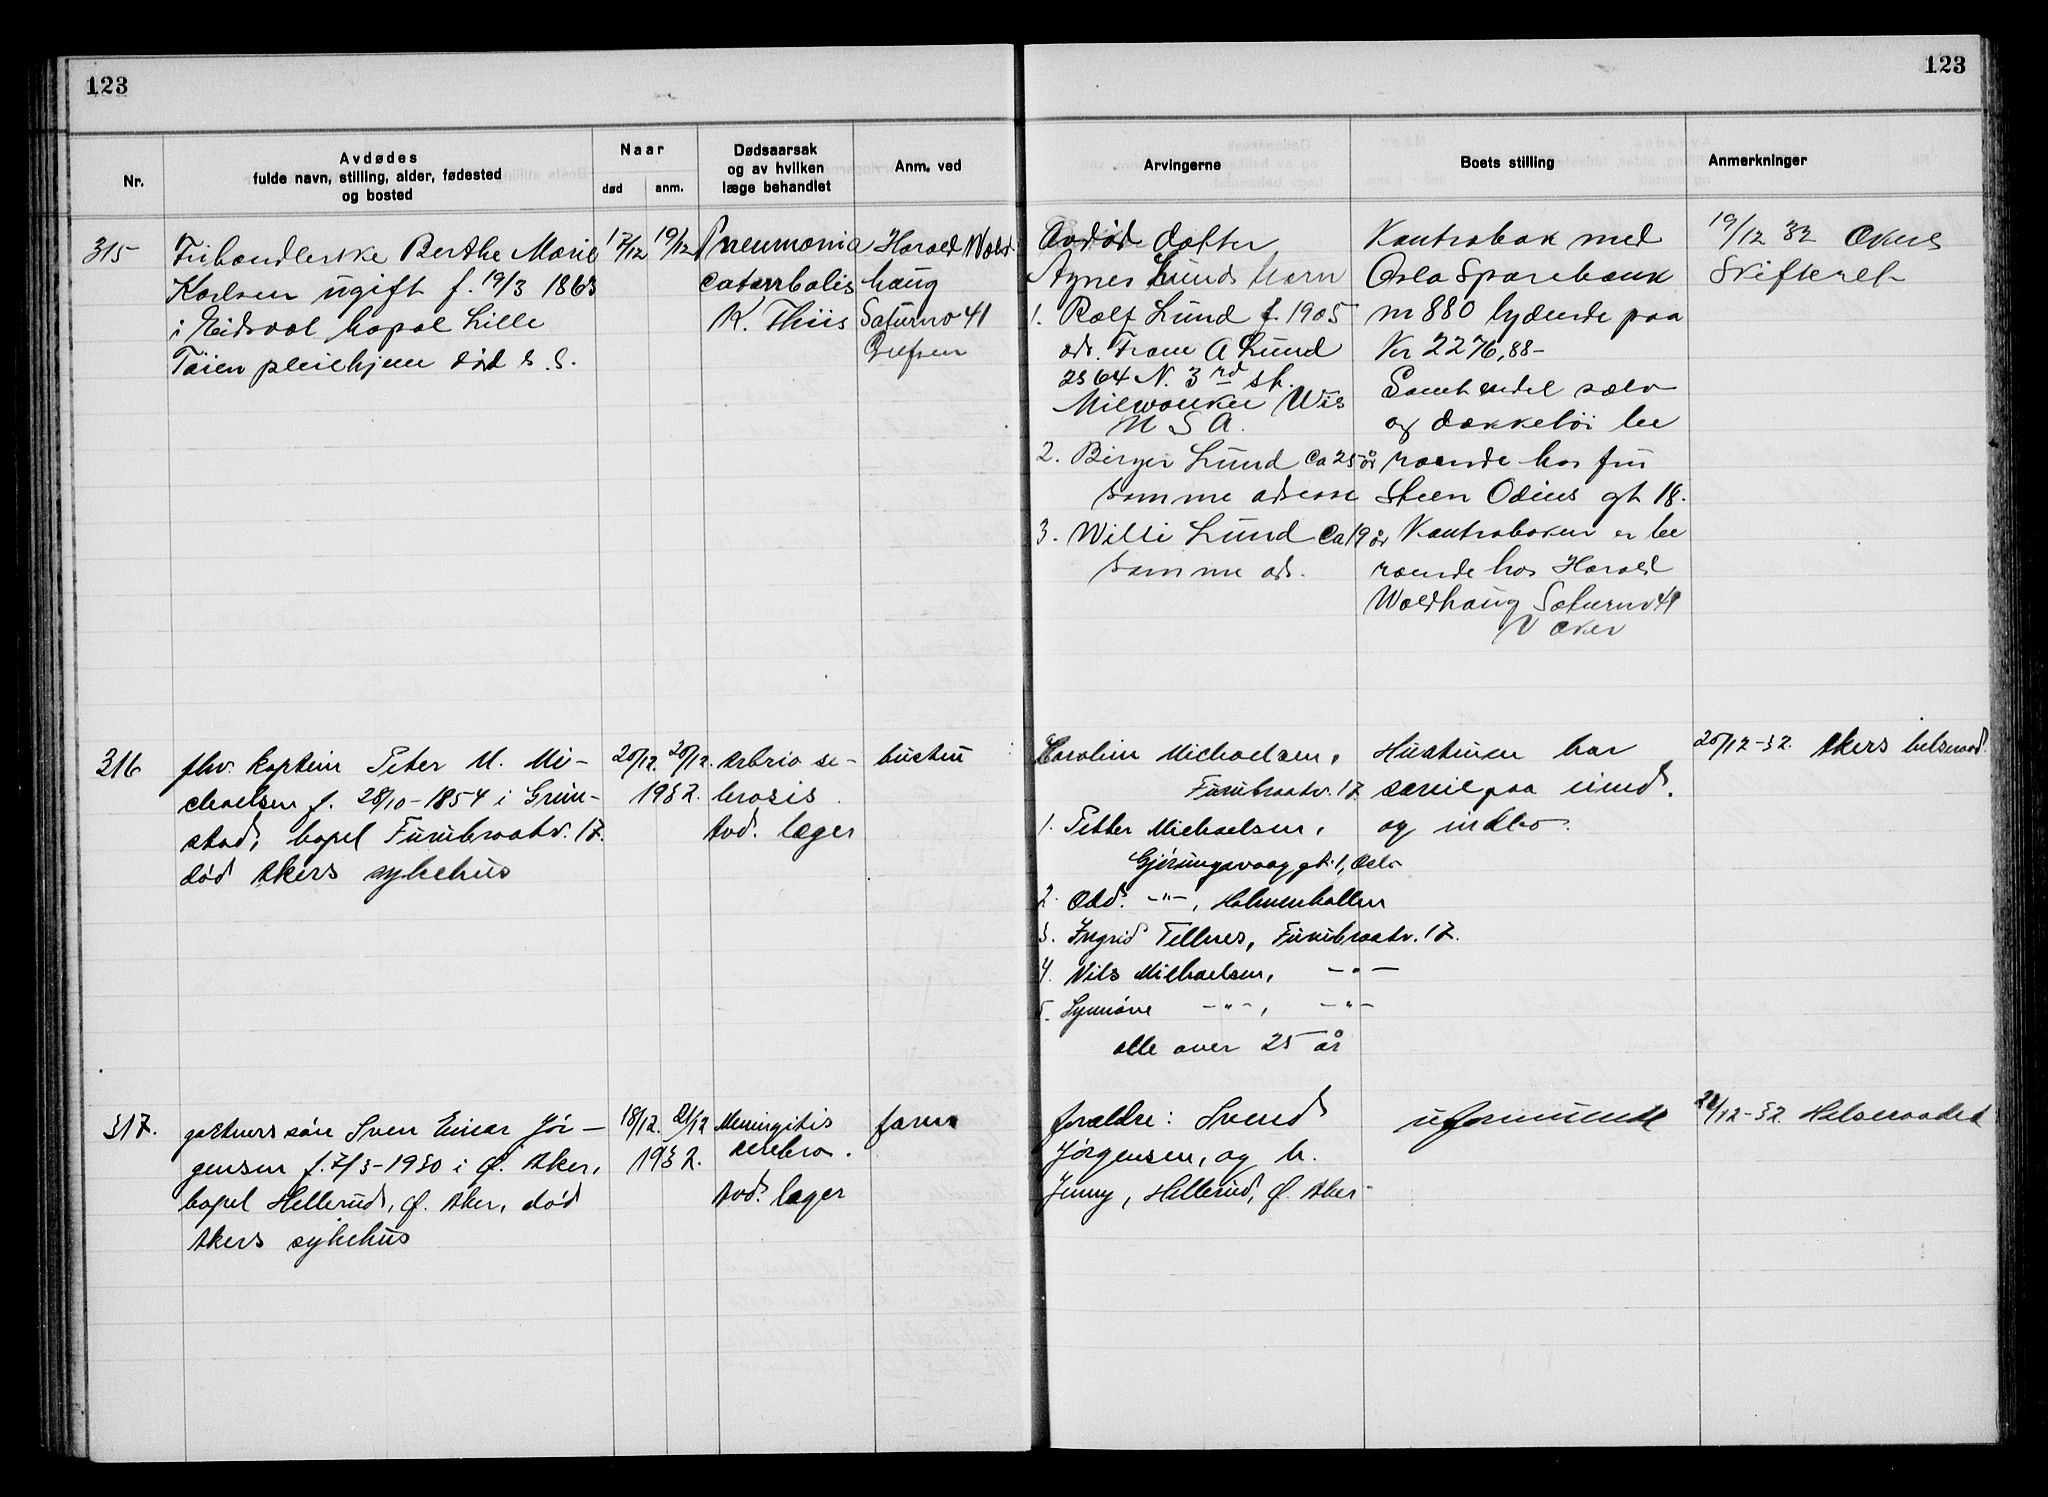 123
123
Nr.
Avdødes
fulde navn, stilling, alder, fødested
og bosted
Naar
død
anm.
Dødsaarsak
og av hvilken
læge behandlet
Anm. ved
Arvingerne
Boets stilling
Anmerkninger
315
Frihandlerske Berthe Marie
Karlsen ugift f. 19/3 1863
i Eidsvol bopæl Lille
Töien pleiehjem död s. s.
17/12
19/12
Pneumonia
catarrhalis
K. Thiis
Harald Wold-
haug
Saturnv 41
Grefsen
Avdöde datter
Agnes Lunds barn
1. Rolf Lund f. 1905
ads. Fram A Lund
2564 N. 3rd st.
Milwaukee Wis
U S A.
2. Birger Lund ca 25 år
samme adresse
3. Willi Lund ca 19 år
samme ads.
Kontrabok med
Oslo Sparebank
nr 880 lydende paa
Kr 2276,88-
Samt endel sölv
og dækketöi be
roende hos fru
Steen Odins gt 18.
Kontraboken er be
roende hos Harald
Woldhaug Saturnv 41
V Aker
19/12 32 Akers
Skifteret
316
fhv. kaptein Peter M. Mi-
chaelsen f. 28/10-1854 i Grim-
stad, bopel Furubraatv. 17.
død Akers sykehus
20/12.
20/12.
1932.
Arterio sc-
lerosis
Avd. læger
hustru
Karoline Michaelsen,
Furubraatv. 17
1. Petter Michaelsen,
Gjörungsvaag gt. 1, Oslo
2. Odd. -"-, Holmenkollen
3. Ingrid Tellnes, Furubraatv. 17.
4. Nils Michaelsen, -"-
5. Synnöve -"-, -"-
alle over 25 år
Hustruen har
paa eiend.
og indbo.
20/12-32. Akers helseraad.
317.
gartners søn Sven Einar Jör-
gensen f. 7/3-1930 i Ø. Aker,
bopel Hellerud, Ø. Aker, död
Akers sykehus
18/12.
21/12
1932.
Meningitis
cerebro.
Avd. læger
faren
forældre: Svend
Jörgensen, og h.
Jenny, Hellerud, Ø. Aker
uformuende
21/12-32. Helseraadet